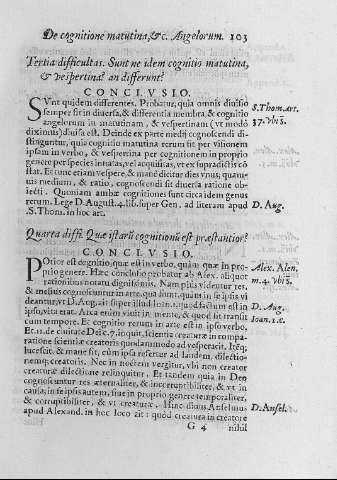 De cognitione matutina,&c. Angelorum. 103
Tertia difficultas. Sunt ne idem cognitio matutina,
& vespertina? an differunt?
CONCLVSIO.
SVnt quidem differentes. Probatur, quia omnis diuisio
semper fit in diuersa, & differentia membra, & cognitio
angelorum in matutinam, & vespertinam (vt modò
diximus) diuisa est. Deinde ex parte medij cognoscendi di-
stinguntur, quia cognitio matutina rerum fit per visionem
ipsam in verbo, & vespertina per cognitionem in proprio
genere per species innatas, vel acquisitas, vt ex supradictis cõ
stat. Et tunc etiam vespere, & manè dicitur dies vnus; quam-
uis medium, & ratio, cognoscendi sit diuersa ratione ob-
iecti. Quoniam ambæ cognitiones sunt circa idem genus
rerum. Lege D. August. 4. lib. super Gen. ad literam apud
S. Thom. in hoc art.
S. Thom. art.
37. vbi s.
D. Aug.
Quarta diffi. Quæ istarũ cognitionũ est præstantior?
CONCLVSIO.
POtior est cognitio quæ est in verbo, quàm quæ in pro-
prio genere. Hæc conclusio probatur ab Alex. aliquot
rationibus notatu dignissimis. Nam plus videntur res,
& melius cognoscuntur in arte, quã sunt, quàm in se ipsis vi
deantur, vt D. Aug. ait super illud Ioan. 1. quod factum est in
ipso, vita erat. Arca enim viuit in mente, & quod fit transit
cum tempore. Et cognitio rerum in arte est in ipso verbo.
Et 11. de ciuitate Dei c. 7. inquit, scientia creaturæ in compa-
ratione scientiæ creatoris quodammodo aduesperascit. Itẽq;
lucescit, & mane fit, cùm ipsa refertur ad laudem, dilectio
nemq; creatoris. Nec in noctem vergitur, vbi non creator
creaturæ dilectione relinquitur. Et tandem quia in Deo
cognoscuntur res æternaliter, & incorruptibiliter, & vt in
causa, in se ipsis autem, siue in proprio genere temporaliter,
& corruptibiliter, & vt creaturæ. Hinc diuus Anselmus
apud Alexand. in hoc loco ait: quòd creatura in creatore
Alex. Alen.
m. 4. vbi s.
D. Aug.
Ioan. 1.c.
D. Ansel.
G 4 nihil